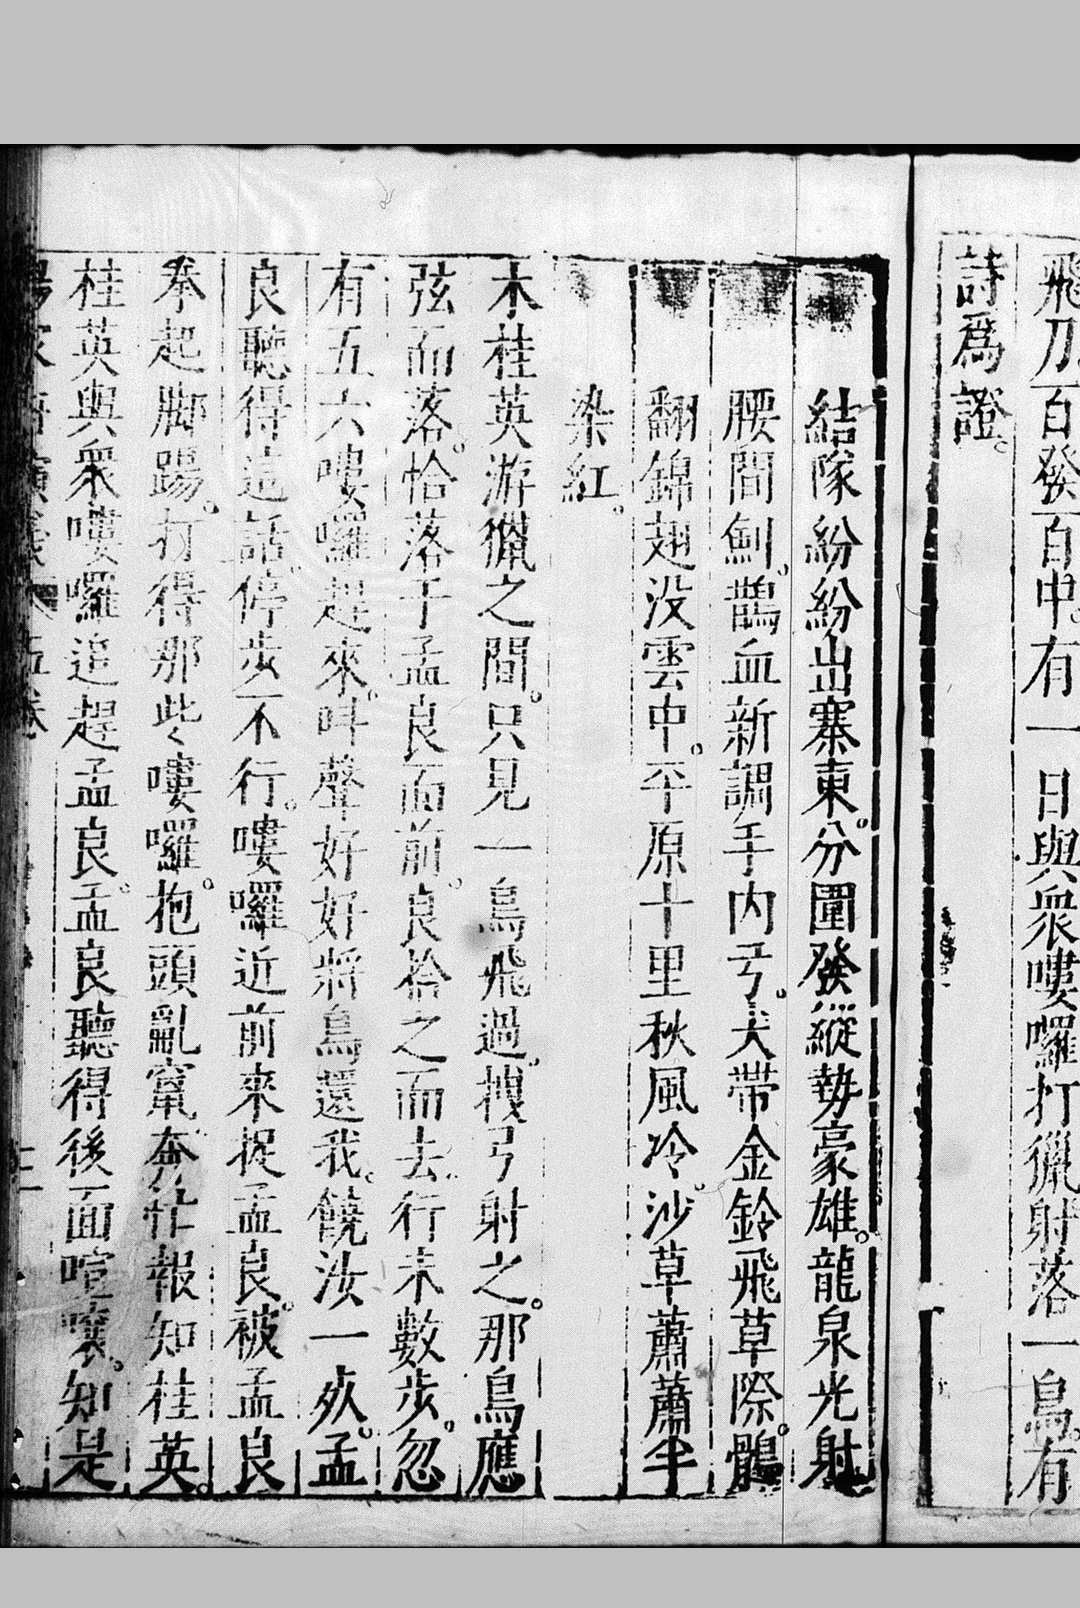 飛刀百發百中。有一日與衆嘍囉打獵射落一鳥。有
詩爲證。
結隊紛紛出寨東。分圍發縱勢豪雄。龍泉光射
腰間劍。鵲血新調手內弓。犬带金鈴飛草際。鶻
翻錦翅没雲中。平原十里秋風冷。沙草蕭蕭半
染紅。
木桂英游獵之間。只見一鳥飛過。拽弓射之。那鳥應
弦而落。恰落于孟良面前。良拾之而去。行未數步。忽
有五六嘍囉趕來。呌聲好好將鳥還我。饒汝一死。孟
良聽得這話。停步不行。嘍囉近前來捉孟良。被孟良
拳起脚踢。打得那些嘍囉。抱頭亂竄奔忙報知桂英。
桂英與衆嘍囉追趕孟良。孟良聽得後面喧嚷。知是
楊家 演義 五卷 三